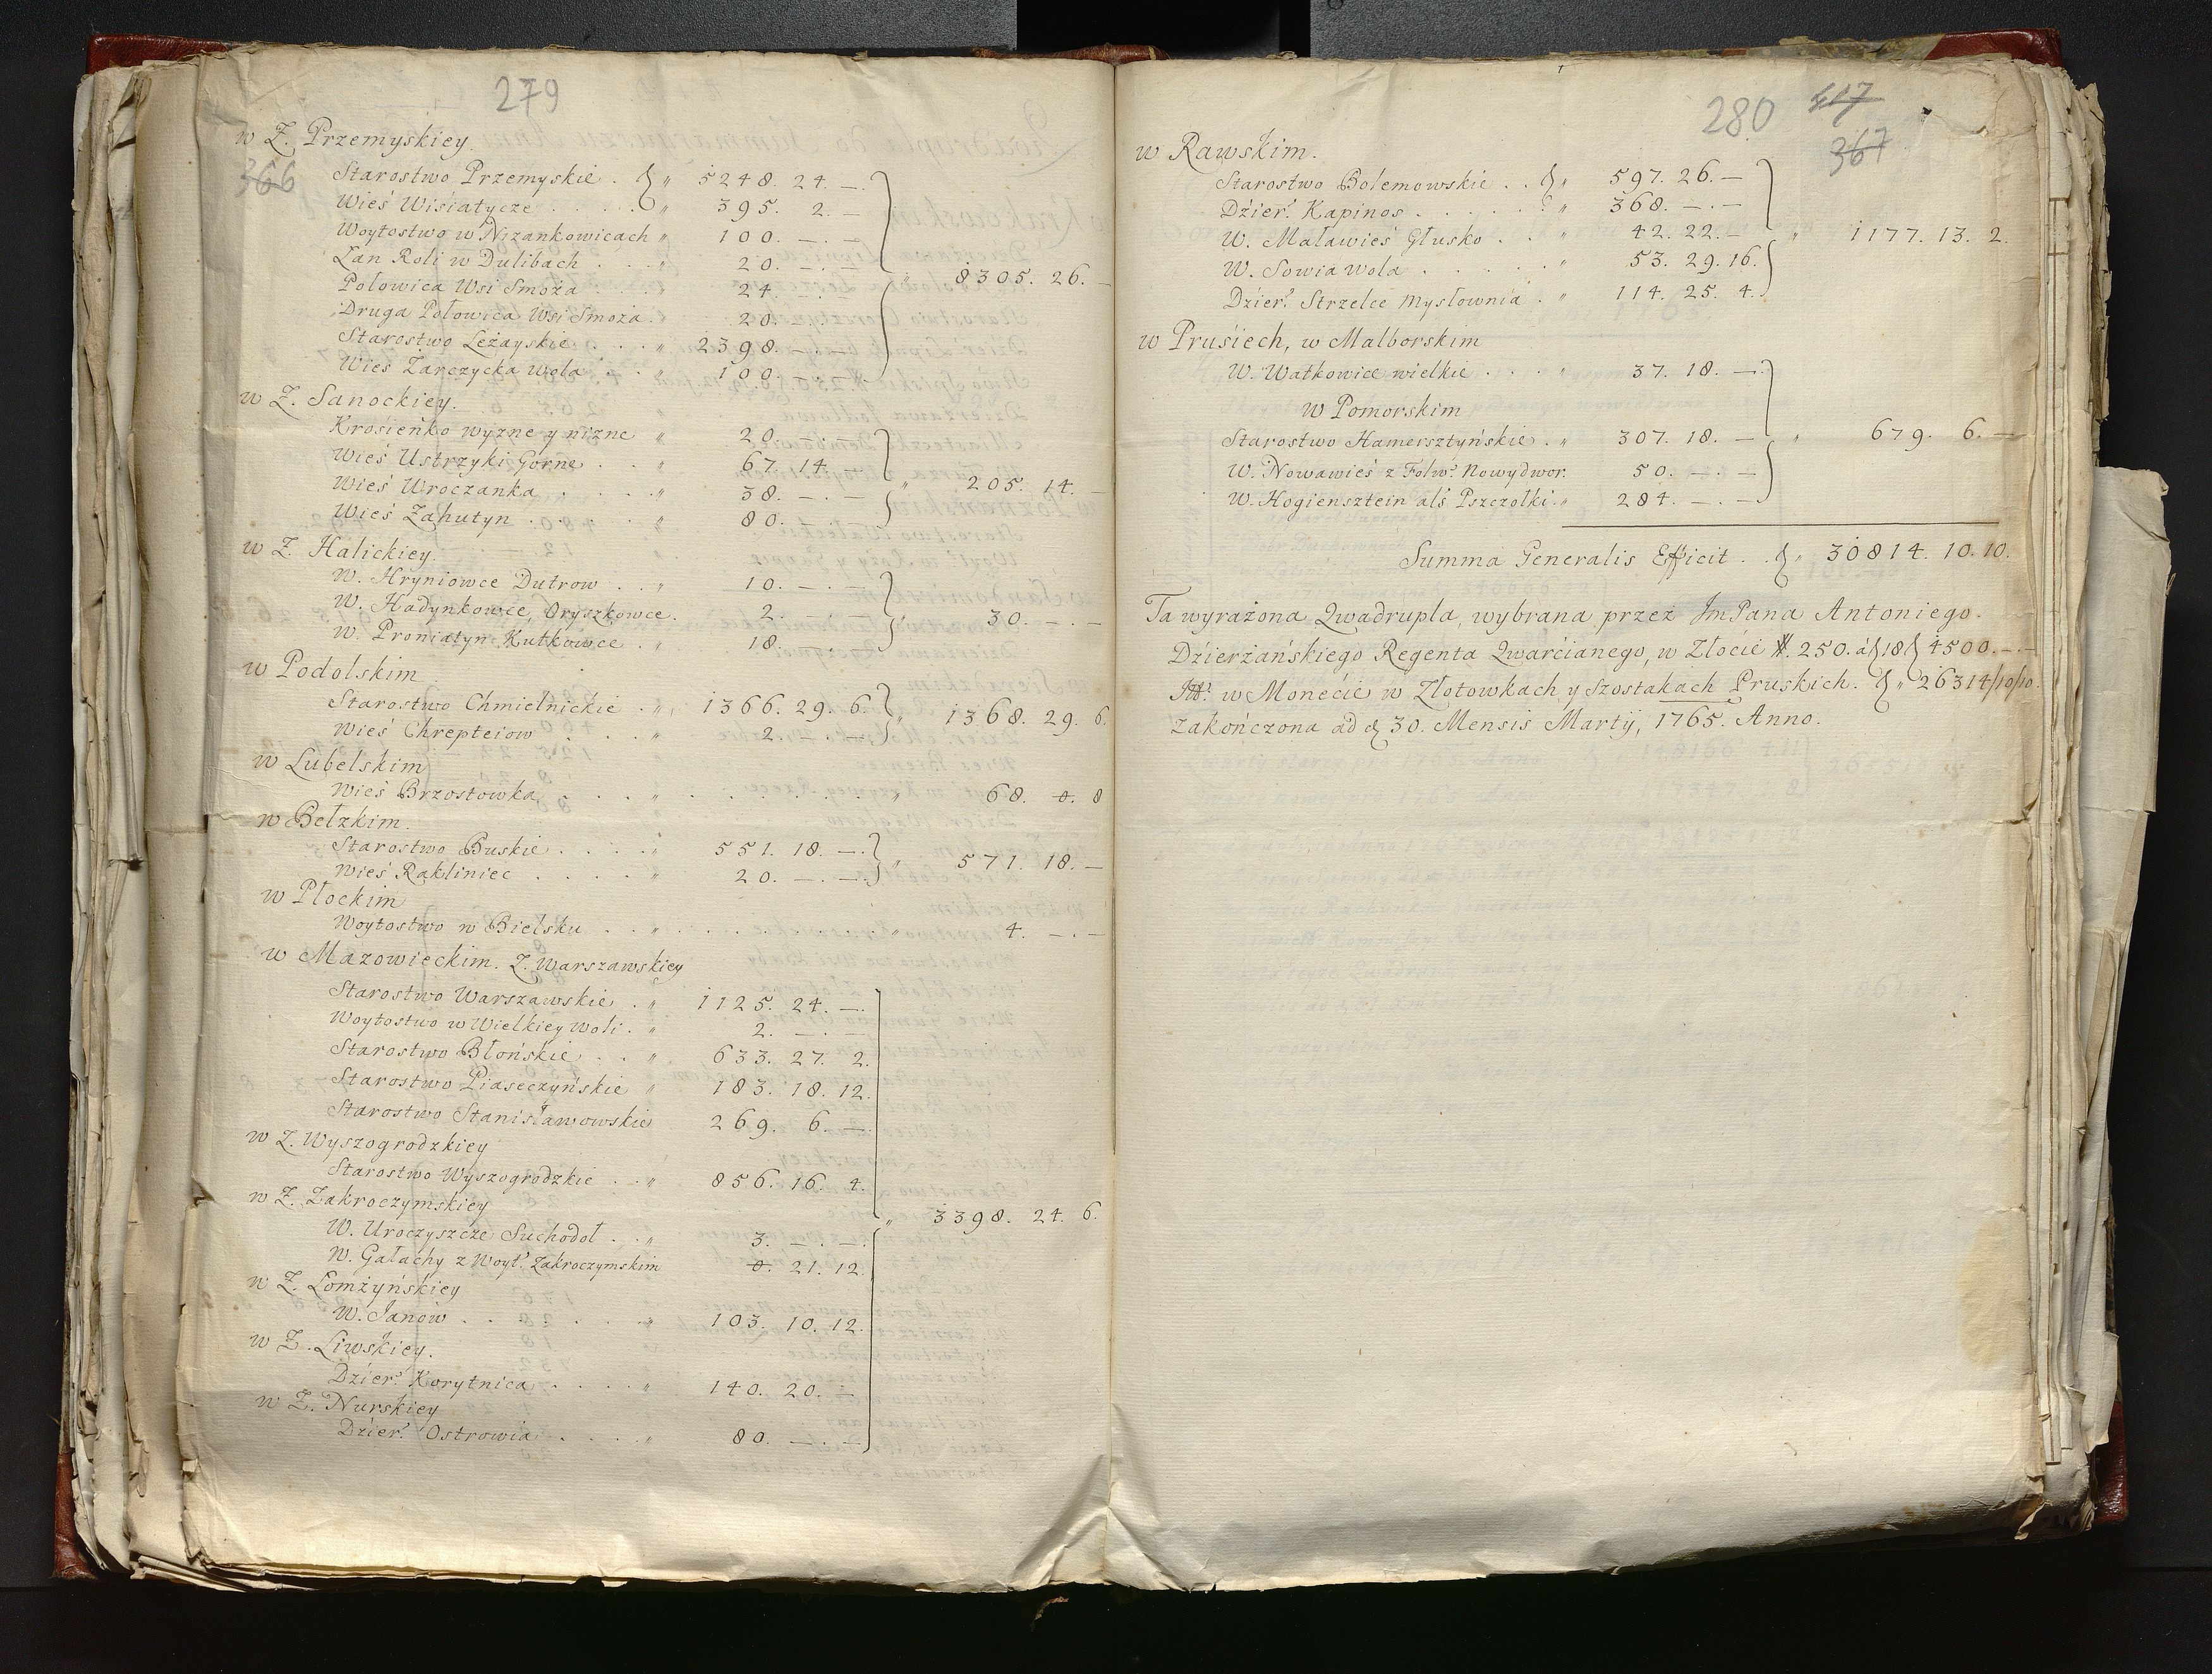 279
w Z. Przemyskiey.
366
Starostwo Przemyskie . " 5248. 24. —
Wieś Wisiatycze . . . . . " 395. 2. —
Woytostwo w Nizankowicach " 100. — . —
Łan Roli w Dulibach . . . " 20. — . —
" 8305. 26. —
Połowica Wsi Smoża . . . " 24. — . —
Druga Połowica Wsi Smoża . " 20. — . —
Starostwo Leżayskie . . . " 2398. — . —
Wieś Zarczycka Wola . . " 100. — . —
w Z. Sanockiey.
Krosieńko wyzne y nizne " 20. — . —
Wieś Ustrzyki Gorne . . " 67. 14. —
Wieś Wroczanka . . . . " 38. — . —
" 205. 14. —
Wieś Zahutyn . . . . " 80. — . —
w Z. Halickiey.
W. Hryniowce Dutrow . . " 10. — . —
W. Hadynkowce, Oryszkowce . 2. — . —
" 30. — . —
W. Proniatyn Kutkowce . " 18. — . —
w Podolskim
Starostwo Chmielnickie . " 1366. 29. 6.
" 1368. 29. 6.
Wieś Chrepteiow . . . " 2. — . —
w Lubelskim
Wieś Brzostowka . . . " . . . . . . " 68. 0. 8
w Bełzkim.
Starostwo Buskie . . . . " 551. 18. — .
" 571. 18. —
Wieś Rakliniec . . . . " 20. — . — .
w Płockim
Woytostwo w Bielsku . . . " . . . . . . . " 4. — . —
w Mazowieckim. Z. Warszawskiey
Starostwo Warszawskie . " 1125. 24. — .
Woytostwo w Wielkiey Woli . " 2. — . —
Starostwo Błońskie . . " 633. 27. 2.
Starostwo Piaseczyńskie " 183. 18. 12.
Starostwo Stanisławowskie 269. 6. — .
w Z. Wyszogrodzkiey
Starostwo Wyszogrodzkie . . " 856. 16. 4.
w Z. Zakroczymskiey
" 3398. 24. 6.
W. Uroczyszcze Suchodoł . . " 3. — . — .
W. Gałachy z Woyt. Zakroczymskim 0. 21. 12.
w Z. Łomżyńskiey
W. Janow . . . . . . " 103. 10. 12.
w Z. Liwskiey.
Dzier. Korytnica . . . . " 140. 20. —
w Z. Nurskiey
Dzier. Ostrowia . . . . " 80. — . —
280 417
367
w Rawskim.
Starostwo Bolemowskie . . " 597. 26. —
Dzier. Kapinos . . . . . . " 368. — . —
W. Maławieś Głusko . . " 42. 22. —
" 1177. 13. 2.
W. Sowia wola . . . . . " 53. 29. 16.
Dzier. Strzelce Mysłownia . " 114. 25. 4.
w Prusiech, w Malborskim
W. Watkowice wielkie . . . . " 37. 18. — .
w Pomorskim
Starostwo Hamersztyńskie . " 307. 18. —
" 679. 6. —
W. Nowawieś z Folw. Nowydwor. 50. — . —
W. Hogiensztein als Pszczołki . " 284. — . —
Summa Generalis Efficit . . " 30814. 10. 10.
Ta wyrażona Qwadrupla, wybrana przez JmPana Antoniego
Dzierżańskiego Regenta Qwarcianego, w Złocie #. 250. á 18 4500. — . —
w Monecie w Złotowkach y Szostakach Pruskich. " 26314/10/10.
zakończona ad d. 30. Mensis Martij, 1765. Anno.